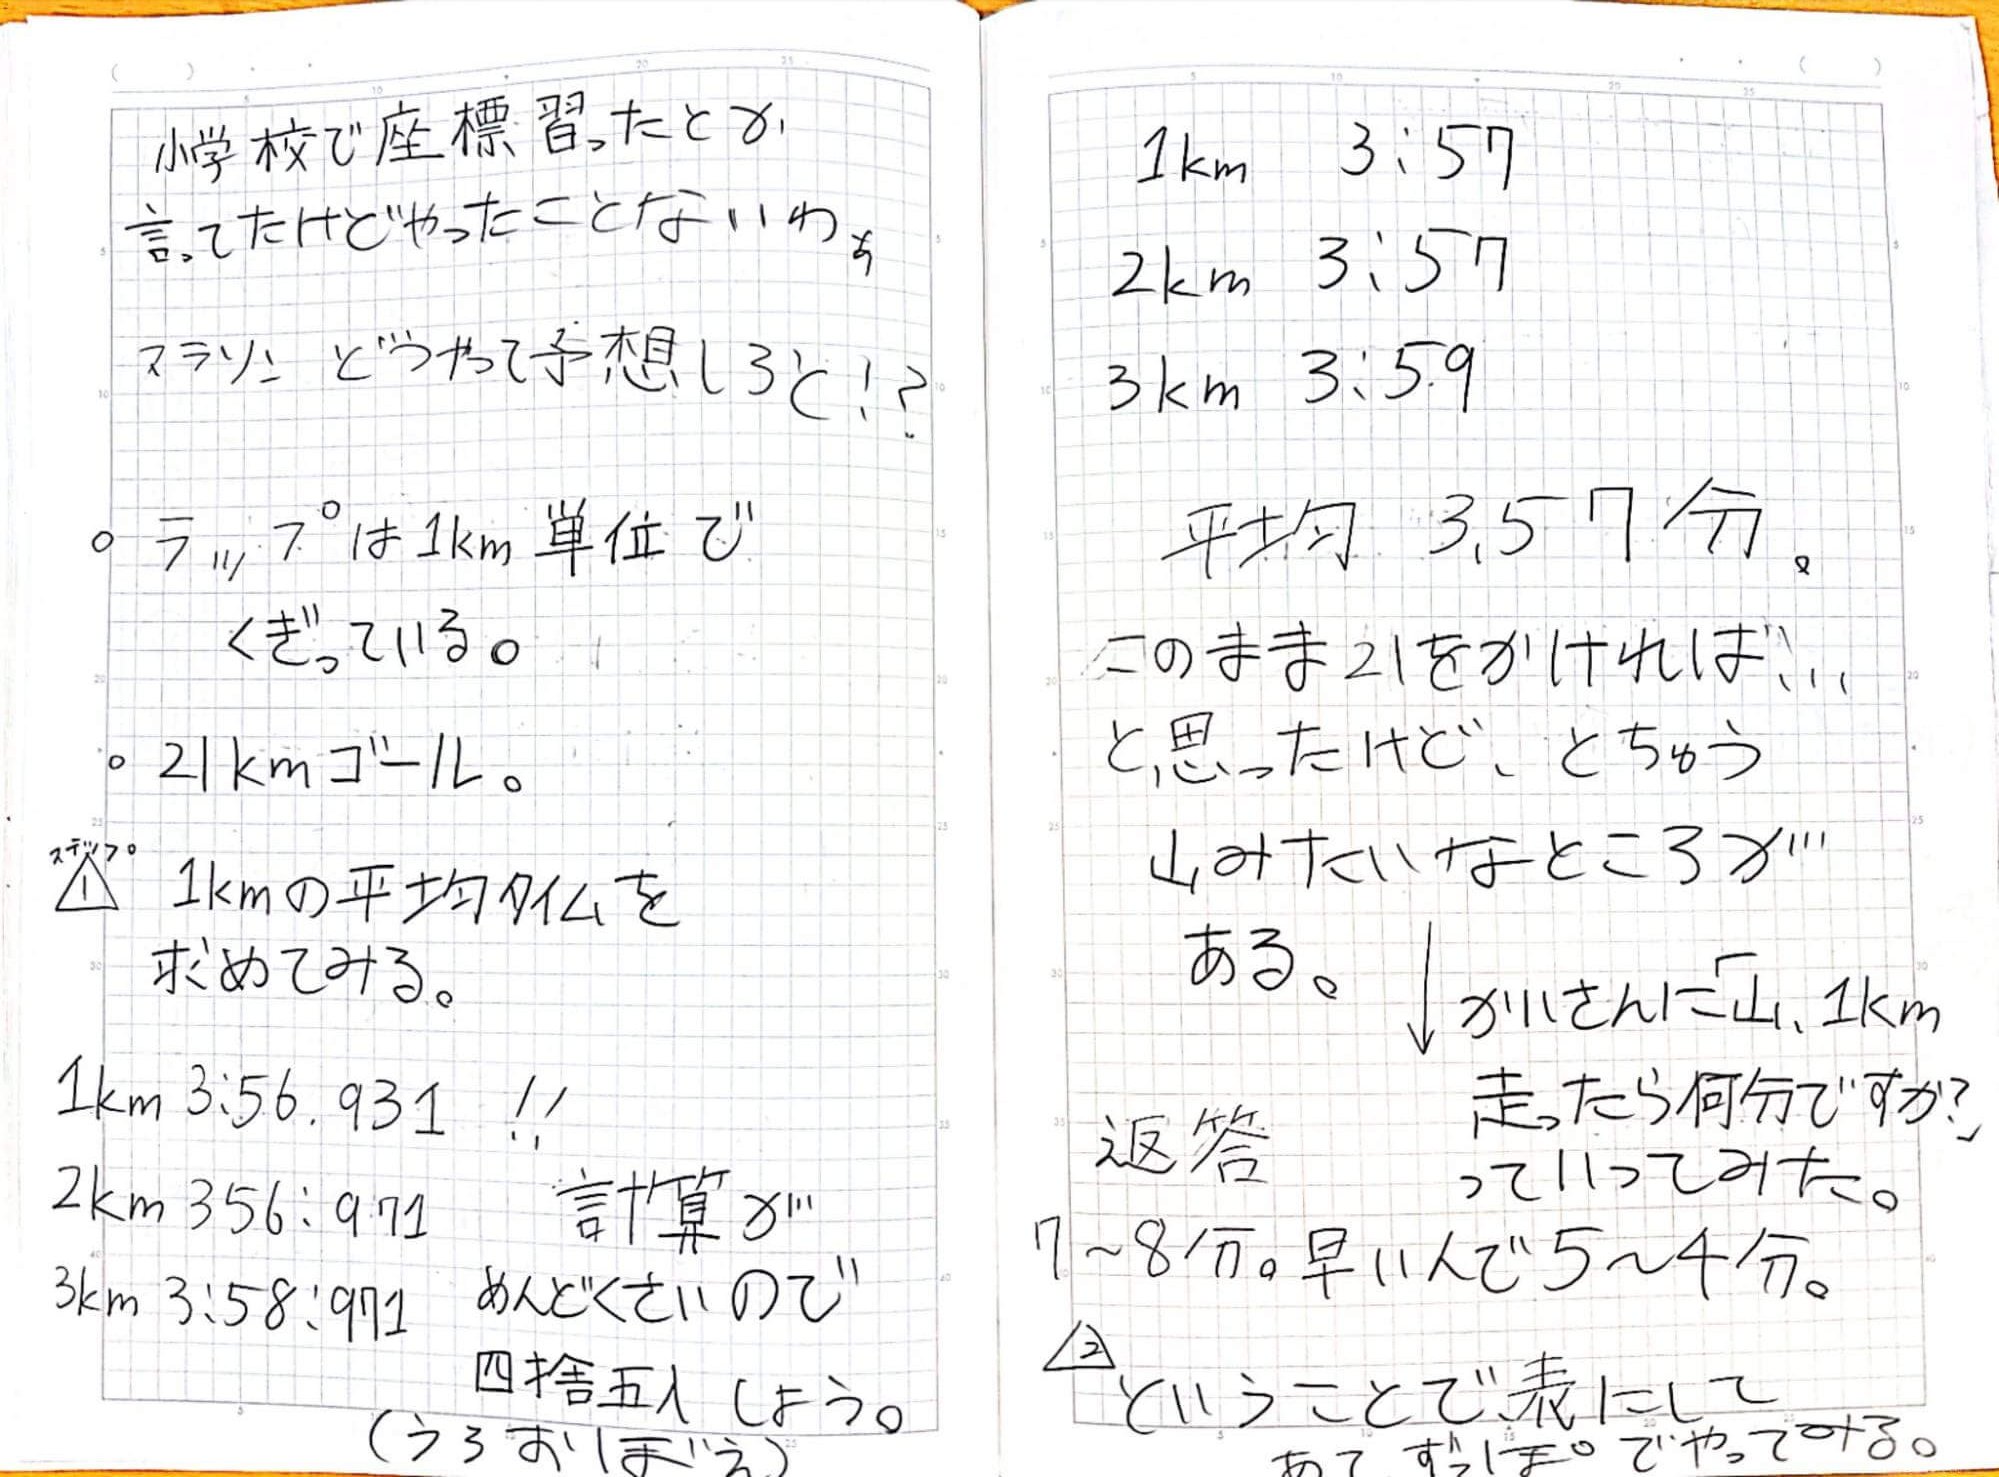 小学校で座標習ったとか
言ってたけどやったことないわぁ
マラソン どうやって予想しろと!?
○ ラップは1km単位で
くぎっている。
○ 21kmゴール。
ステップ
1 1kmの平均タイムを
求めてみる。
1km 3:56.931 !!
2km 356:971 計算が
3km 3:58:971 めんどくさいので
四捨五入しよう。
(うろおぼえ)
1km 3:57
2km 3:57
3km 3:59
平均 3,57分。
このまま21をかければ...
と思ったけど、とちゅう
山みたいなところが
ある。
↓ かいさんに「山、1km
走ったら何分ですか?」
っていってみた。
返答
7~8分。早いんで5~4分。
2
ということで、表にして
あてずっぽでやってみる。